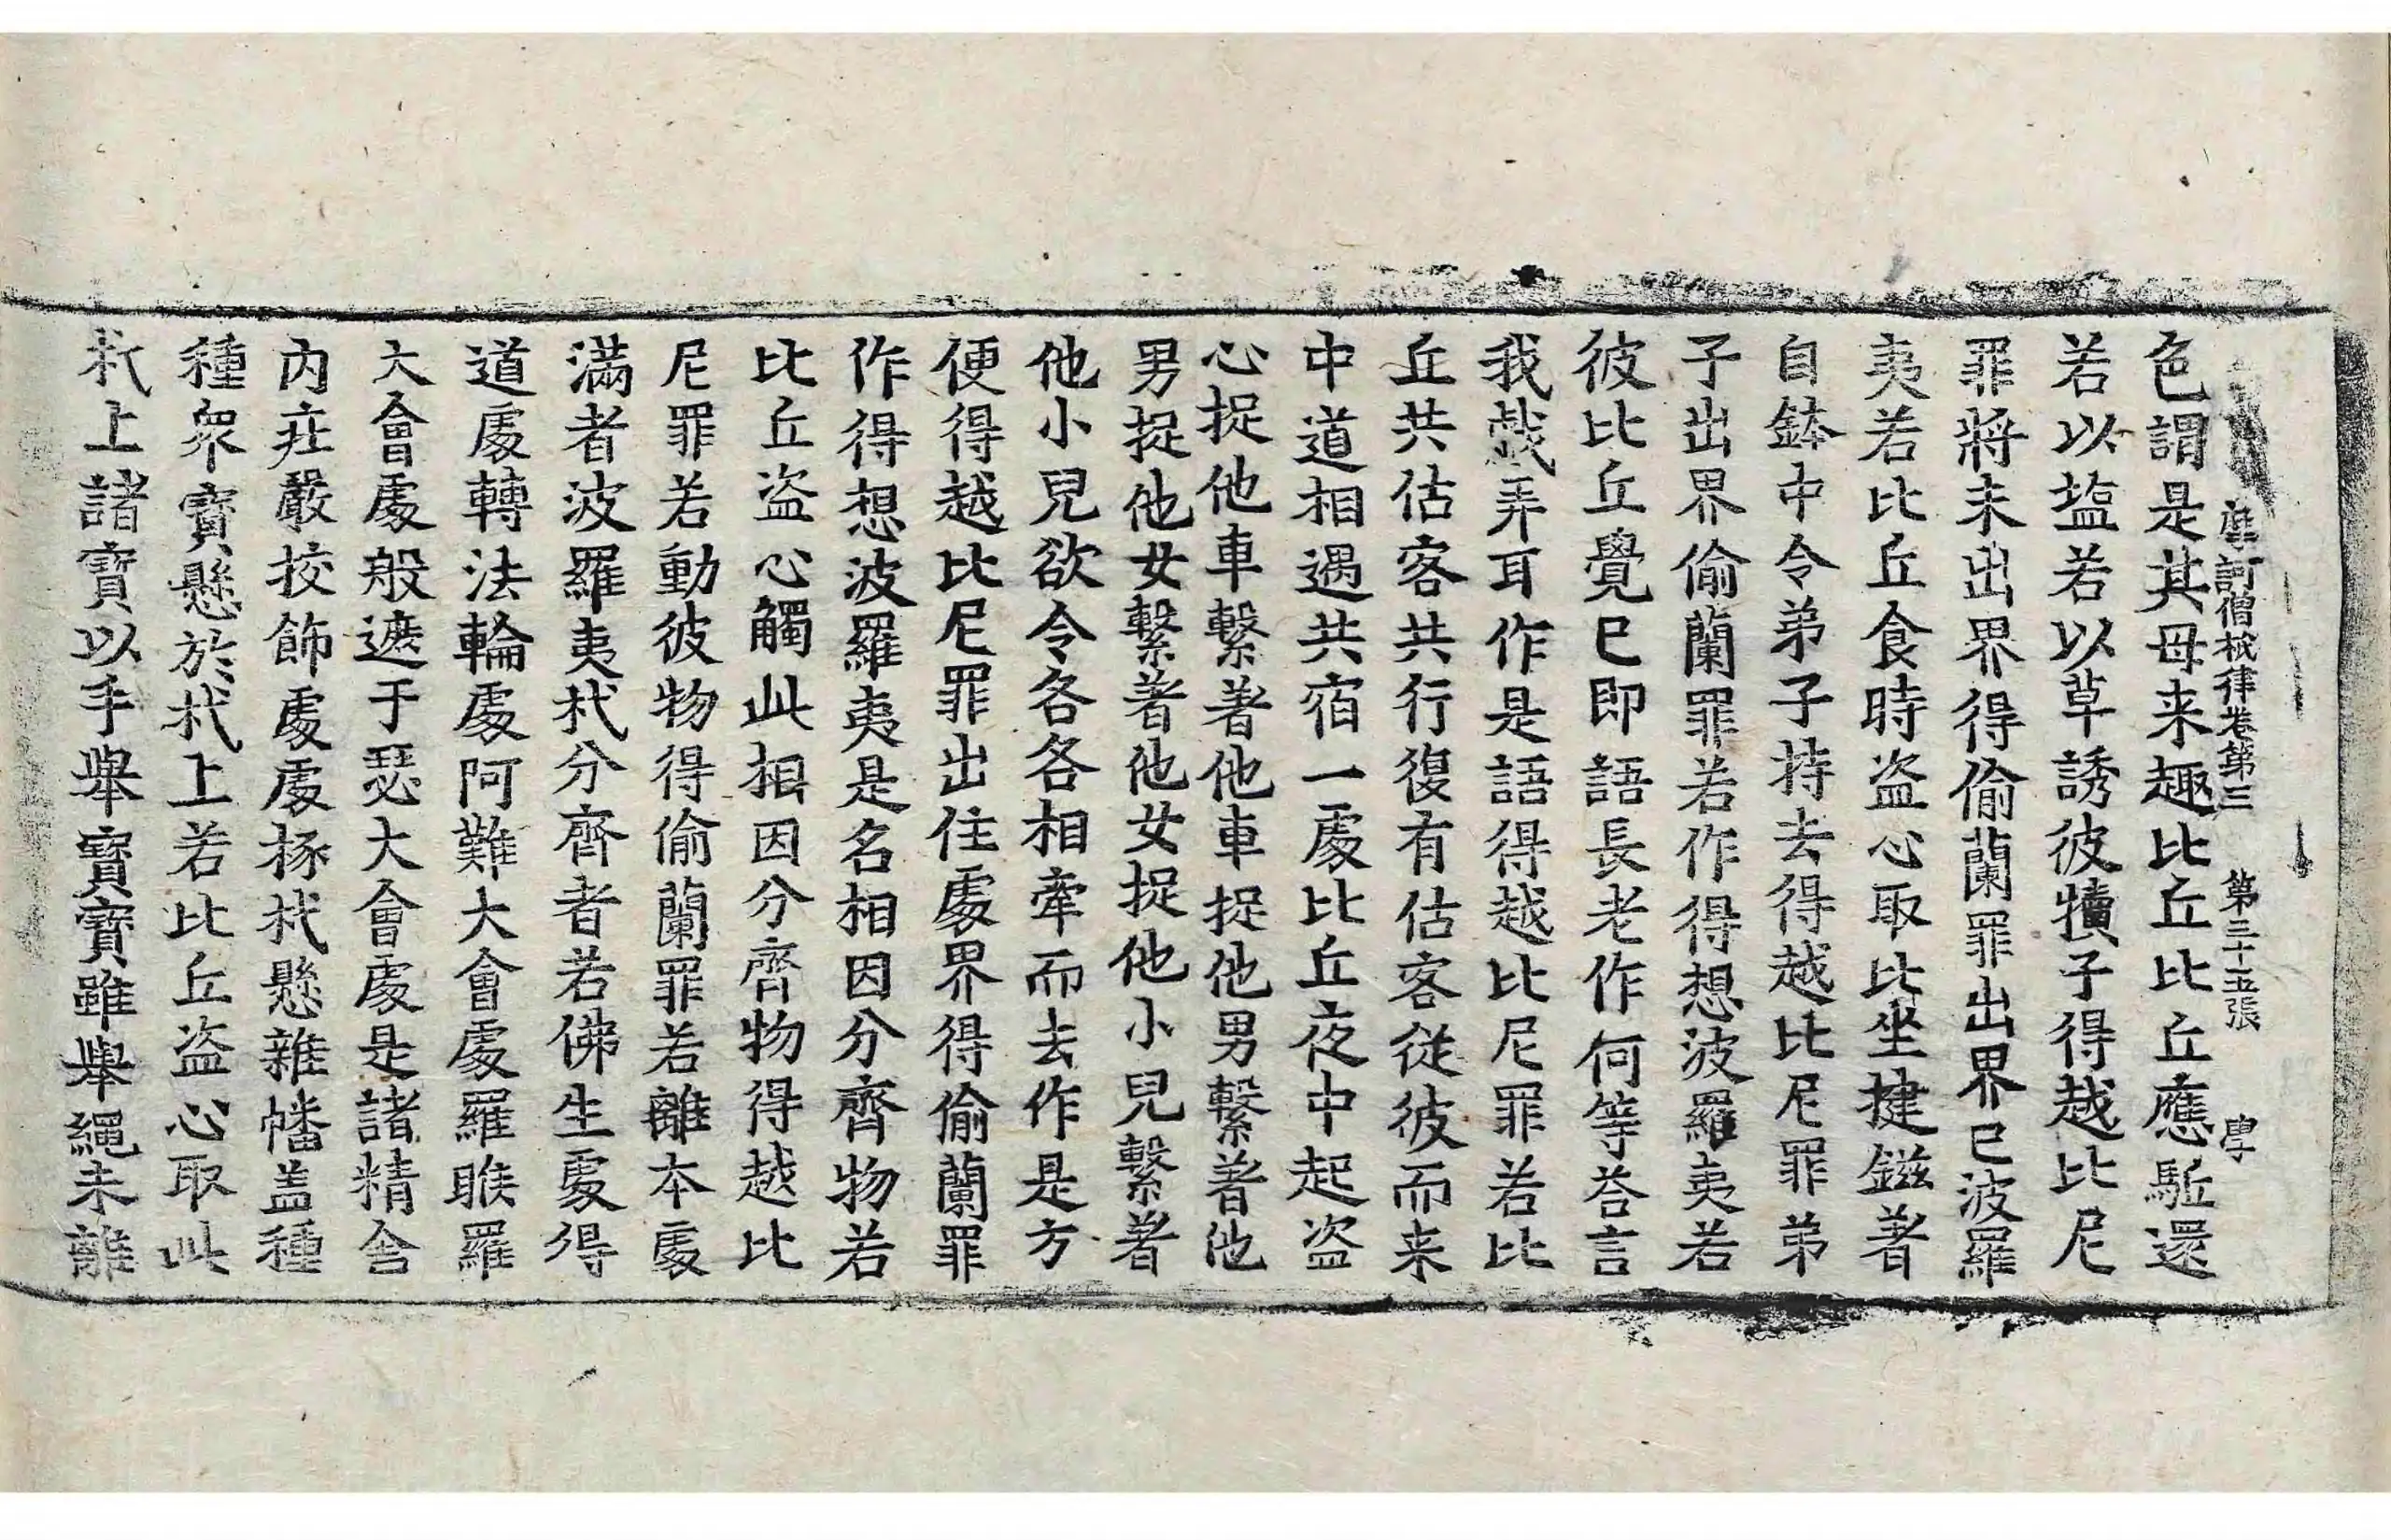 摩訶僧祇律卷第三 第三十五張 學
色謂是其母来趣比丘比丘應駈還
若以塩若以草誘彼犢子得越比尼
罪將未出界得偷蘭罪出界已波羅
夷若比丘食時盗心取比坐揵鎡著
自鉢中令弟子持去得越比尼罪弟
子出界偷蘭罪若作得想波羅夷若
彼比丘覺已即語長老作何等荅言
我戱弄耳作是語得越比尼罪若比
丘共估客共行復有估客從彼而来
中道相遇共宿一處比丘夜中起盗
心捉他車繫著他車捉他男繫著他
男捉他女繫著他女捉他小兒繫著
他小兒欲令各各相牽而去作是方
便得越比尼罪出住處界得偷蘭罪
作得想波羅夷是名相因分齊物若
比丘盗心觸此相因分齊物得越比
尼罪若動彼物得偷蘭罪若離本處
滿者波羅夷杙分齊者若佛生處得
道處轉法輪處阿難大會處羅睺羅
大會處般遮于瑟大會處是諸精舍
內莊嚴挍飾處處㧻杙懸雜幡盖種
種衆寶懸於杙上若比丘盗心取此
杙上諸寶以手舉寶寶雖舉繩未離